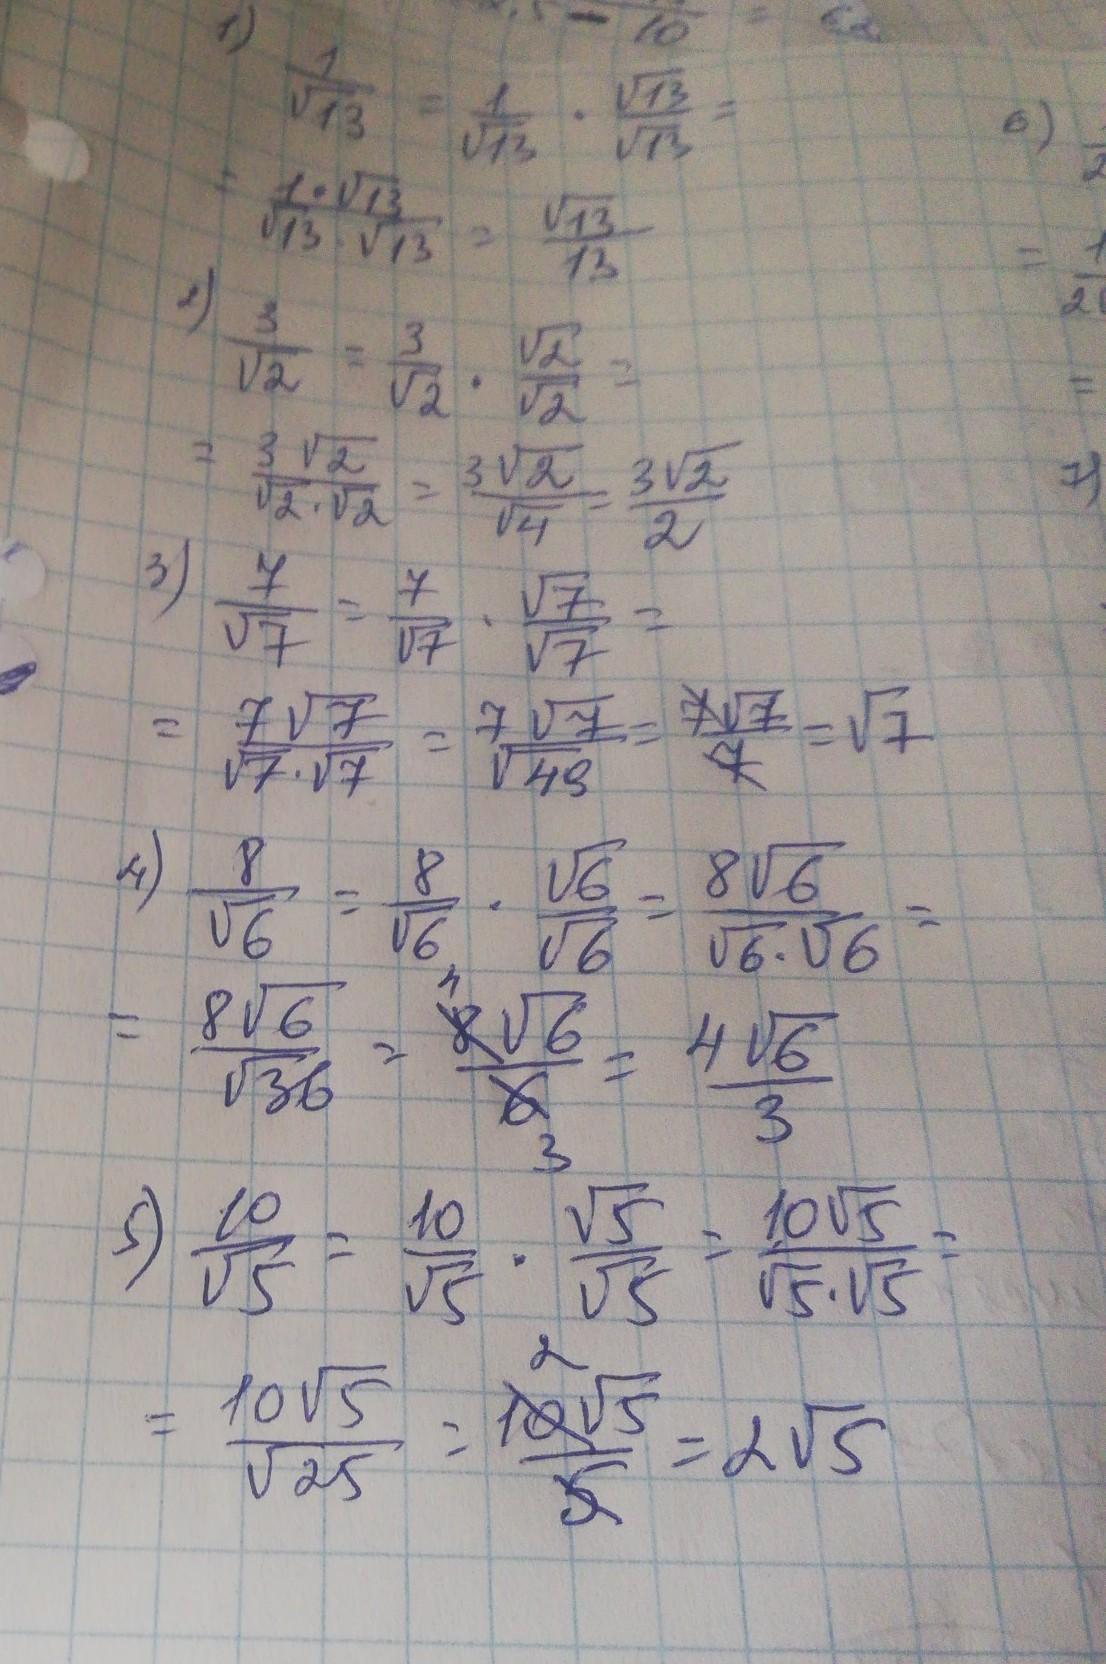 10 =
1)
1/√13 = 1/√13 · √13/√13 =
= 1·√13/√13·√13 = √13/13
2) 3/√2 = 3/√2 · √2/√2 =
= 3√2/√2·√2 = 3√2/√4 = 3√2/2
3) 7/√7 = 7/√7 · √7/√7 =
= 7√7/√7·√7 = 7√7/√49 = 7√7/7 = √7
4) 8/√6 = 8/√6 · √6/√6 = 8√6/√6·√6 =
= 8√6/√36 = 4 8√6/6 3 = 4√6/3
5) 10/√5 = 10/√5 · √5/√5 = 10√5/√5·√5 =
= 10√5/√25 = 2 10√5/5 = 2√5
6)
=
=
7)